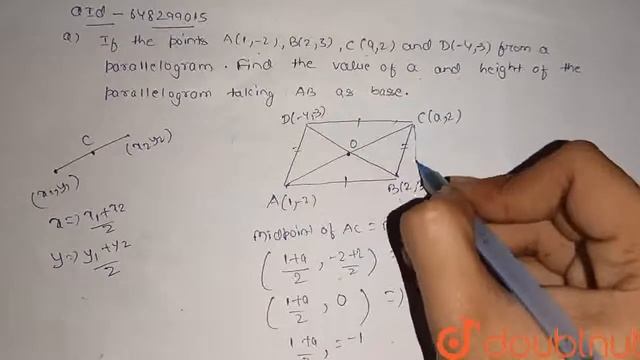 QId - 648299015
Q) If the points A(1,-2), B(2,3), C(a,2) and D(-4,3) from a
parallelogram. Find the value of a and height of the
parallelogram taking AB as base.
D(-4,3)
C(a,2)
O
A(1,-2)
B(2,3
C
(x2,y2)
(x1,y1)
x=) x1+x2/2
y=) y1+y2/2
Midpoint of AC =
(1+a/2, -2+2/2)
(1+a/2, 0) =)
1+a/2, = -1
doubtnut